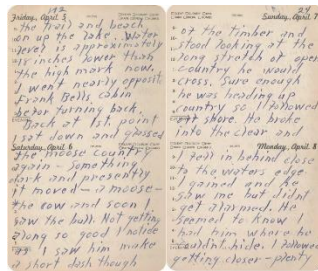 192
Friday, April 5
the trail and beach
on up the lake. Water
level is approximately
18 inches lower than
the high mark now.
I went nearly opposite
Frank Bells cabin
before turning back.
Back at 1st. point
sat down and glassed
Saturday, April 6
the moose country
again - something
dark and presently
it moved - a moose -
the cow and soon I
saw the bull. Not getting
along so good I notice
I saw him make
a short dash though
24
Sunday, April 7
of the timber and
stood looking at the
long stretch of open
country he would
cross. Sure enough
he was heading up
country so I followed
shore. He broke
into the clear and
Monday, April 8
I fell in behind close
to the waters edge.
I gained and he
saw me but didnt
get alarmed. He
seemed to know I
had him where he
couldnt hide. I followed
getting closer - plenty